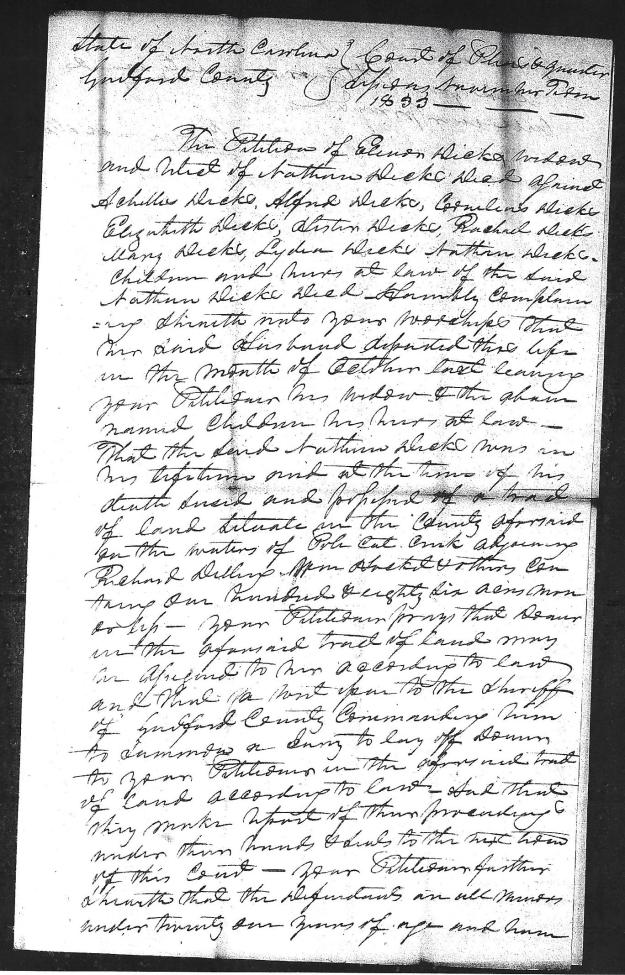 State of North Carolina } Court of Pleas & quarter
Guilford County } Sessions November Term
1833
The Petition of Elenor Dicks widow
and relict of Nathan Dicks Decd against
Achilles Dicks, Alfred Dicks, Cornelius Dicks
Elizabeth Dicks, Dicks, Rachael Dicks
Mary Dicks, Lydia Dicks Nathan Dicks
Children and heirs at law of the said
Nathan Dicks Decd Humbly Complain
=ing Sheweth unto your worships that
her said Husband departed this life
in the month of October last leaving
your Petitioner his widow & the above
named Children his heirs at law —
That the said Nathan Dicks was in
his lifetime and at the time of his
death seised and possessed of a tract
of land situate in the County aforesaid
on the waters of Pole Cat Creek adjoining
Richard Wm & others Con
taing One hundred & eighty six acres more
or less — your Petitioner prays that Dower
in the aforesaid tract of land may
be assigned to her according to law
and that a writ issue to the Sheriff
of Guilford County Commanding him
to summon a Jury to lay off Dower
to your Petitioner in the aforesaid tract
of land according to law — And that
they make report of their proceedings
under their hands & seals to the next term
of this Court — your Petitioner further
Sheweth that the defendants are all minors
under twenty one years of age and have